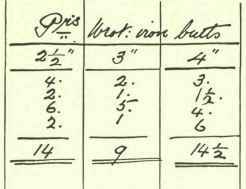 Prs Wrot: iron butts
2½" 3" 4"
4. 2. 3.
2. 1. 1½.
6. 5. 4.
2. 1 6
14 9 14½